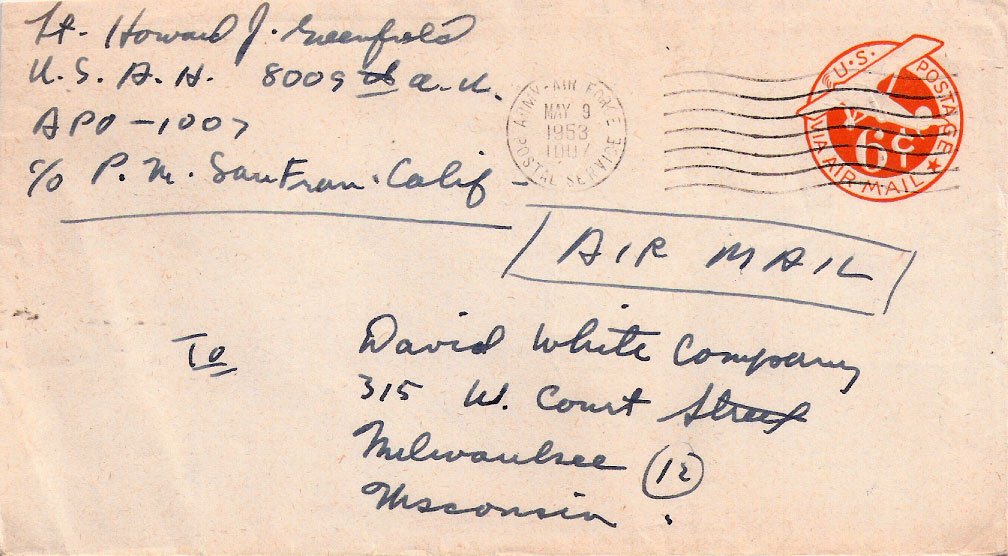 Lt. Howard J. Greenfield
U.S.A.H. 8009 th a.u.
APO - 1007
c/o P.M. San Fran. Calif
ARMY - AIR FORCE
MAY 9
1953
1007
POSTAL SERVICE
U.S. POSTAGE
6¢
VIA AIR MAIL
AIR MAIL
To
David White Company
315 W. Court Street
Milwaukee (12)
Wisconsin.